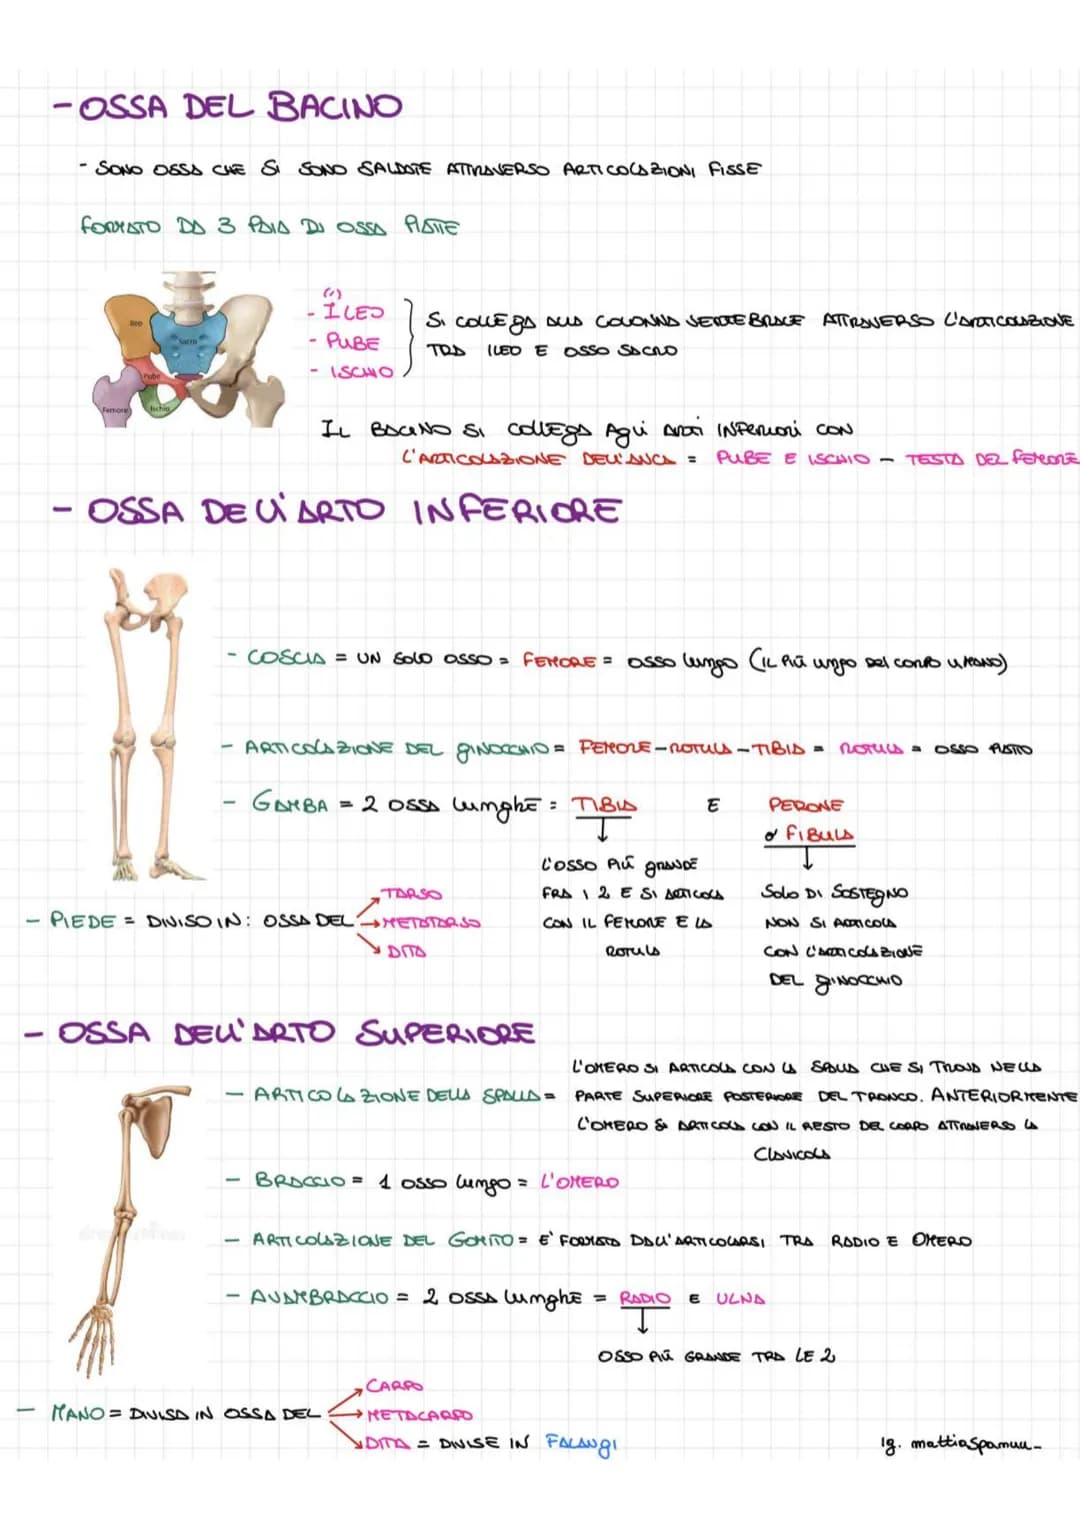 - OSSA DEL BACINO
- SONO OSSA CHE SI SONO SALDATE ATTRAVERSO ARTICOLAZIONI FISSE
FORMATO DA 3 PAIA DI OSSA PIATTE
Ileo
Sacro
Pube
Femore
Ischio
(I)
- ILEO
- PUBE
- ISCHIO
SI COLLEGA ALLA COLONNA VERTEBRALE ATTRAVERSO L'ARTICOLAZIONE
TRA ILEO E OSSO SACRO
IL BACINO SI COLLEGA AGLI ARTI INFERIORI CON
L'ARTICOLAZIONE DELL'ANCA = PUBE E ISCHIO - TESTA DEL FEMORE
- OSSA DELL'ARTO INFERIORE
- COSCIA = UN SOLO OSSO = FEMORE = OSSO lungo (IL PIÙ ungo Del corpo uMANO)
- ARTICOLAZIONE DEL GINOCCHIO = FEMORE-ROTULA-TIBIA = ROTULA = OSSO PIATTO
- GAMBA = 2 OSSA lunghE : TIBIA E PERONE
o FIBULA
L'OSSO PIÙ GRANDE
FRA I 2 E SI ARTICOLA
CON IL FEMORE E LA
ROTULA
SOLO DI SOSTEGNO
NON SI ARTICOLA
CON L'ARTICOLAZIONE
DEL GINOCCHIO
- PIEDE = DIVISO IN: OSSA DEL
TARSO
METATARSO
DITA
- OSSA DELL'ARTO SUPERIORE
- ARTICOLAZIONE DELLA SPALLA = L'OMERO SI ARTICOLA CON LA SPALLA CHE SI TROVA NELLA
PARTE SUPERIORE POSTERIORE DEL TRONCO. ANTERIORMENTE
L'OMERO SI ARTICOLA CON IL RESTO DEL CORPO ATTRAVERSO LA
CLAVICOLA
- BRACCIO = 1 OSSO lungo = L'OMERO
- ARTICOLAZIONE DEL GOMITO = E' FORMATA DALL'ARTICOLARSI TRA RADIO E OMERO
- AVAMBRACCIO = 2 OSSA lunghE = RADIO E ULNA
OSSO PIÙ GRANDE TRA LE 2
- MANO = DIVISA IN OSSA DEL
CARPO
METACARPO
DITA = DIVISE IN FALANGI
Ig. mattiaspamuu_